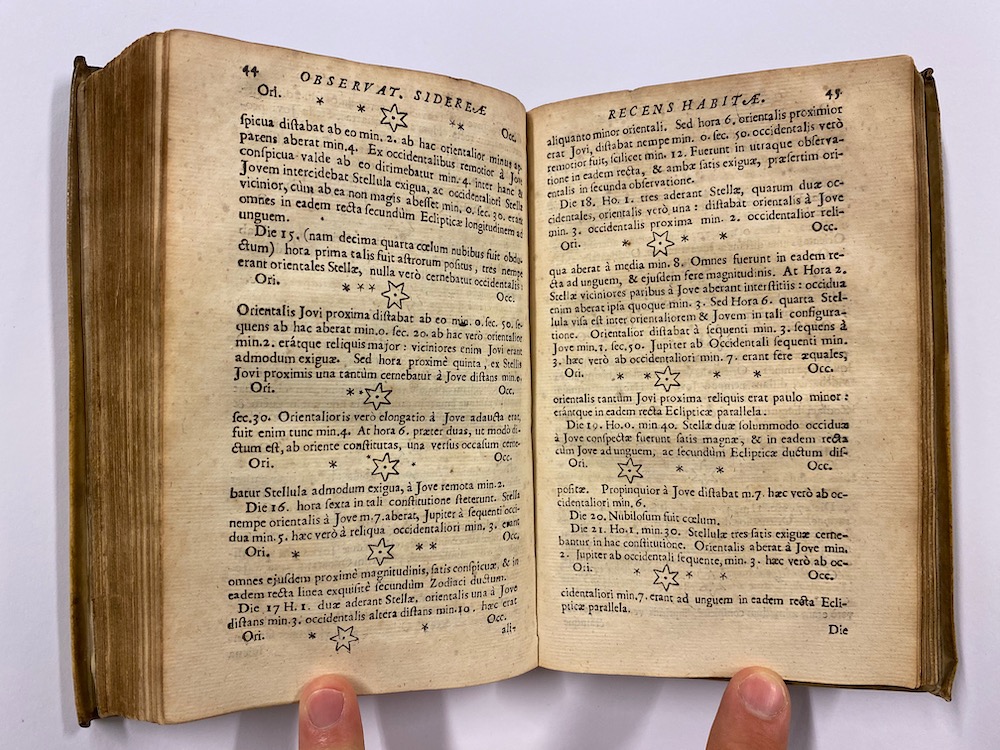 44 OBSERVAT. SIDEREÆ
Ori. * * * ** Occ.
spicua distabat ab eo min. 2. ab hac orientalior minus ap-
parens aberat min.4. Ex occidentalibus remotior à Jove
conspicua valde ab eo dirimebatur min. 4. inter hanc &
Jovem intercidebat Stellula exigua, ac occidentaliori Stellæ
vicinior, cùm ab ea non magis abesset min. 0. sec. 30. erant
omnes in eadem recta secundùm Eclipticæ longitudinem ad
unguem.
Die 15. (nam decima quarta cœlum nubibus fuit obdu-
ctum) hora prima talis fuit astrorum positus, tres nempe
erant orientales Stellæ, nulla verò cernebatur occidentalis:
Ori. *** * Occ.
Orientalis Jovi proxima distabat ab eo min. 0. sec. 50. se-
quens ab hac aberat min.0. sec. 20. ab hac verò orientalior
min.2. erátque reliquis major: viciniores enim Jovi erant
admodum exiguæ. Sed hora proximè quinta, ex Stellis
Jovi proximis una tantùm cernebatur à Jove distans min.0.
Ori. * * Occ.
sec.30. Orientalioris verò elongatio à Jove adaucta erat,
fuit enim tunc min.4. At hora 6. præter duas, ut modò di-
ctum est, ab oriente constitutas, una versus occasum cerne-
Ori. * * Occ.
batur Stellula admodum exigua, à Jove remota min.2.
Die 16. hora sexta in tali constitutione steterunt. Stella
nempe orientalis à Jove m.7. aberat, Jupiter à sequenti occi-
dua min. 5. hæc verò à reliqua occidentaliori min. 3. erant
Ori. * * ** Occ.
omnes ejusdem proximè magnitudinis, satis conspicuæ, & in
eadem recta linea exquisitè secundùm Zodiaci ductum.
Die 17 H.1. duæ aderant Stellæ, orientalis una à Jove
distans min.3. occidentalis altera distans min.10. hæc erat
Ori. * * * Occ.
ali-
RECENS HABITÆ. 45.
aliquanto minor orientali. Sed hora 6, orientalis proximior
erat Jovi, distabat nempe min. 0. sec. 50. occidentalis verò
remotior fuit, scilicet min. 12. Fuerunt in utraque observa-
tione in eadem recta, & ambæ satis exiguæ, præsertim ori-
entalis in secunda observatione.
Die 18. Ho. 1. tres aderant Stellæ, quarum duæ oc-
cidentales, orientalis verò una: distabat orientalis à Jove
min. 3. occidentalis proxima min. 2. occidentalior reli-
Ori. * * * * Occ.
qua aberat à media min. 8. Omnes fuerunt in eadem re-
cta ad unguem, & ejusdem fere magnitudinis. At Hora 2.
Stellæ viciniores paribus à Jove aberant interstitiis: occidua
enim aberat ipsa quoque min. 3. Sed Hora 6. quarta Stel-
lula visa est inter orientaliorem & Jovem in tali configura-
tione. Orientalior distabat à sequenti min. 3. sequens à
Jove min.1, sec.50. Jupiter ab Occidentali sequenti min.
3. hæc verò ab occidentaliori min. 7. erant fere æquales,
Ori. * * * * * Occ.
orientalis tantum Jovi proxima reliquis erat paulo minor:
erántque in eadem recta Eclipticæ parallela.
Die 19. Ho.0. min 40. Stellæ duæ solummodo occiduæ
à Jove conspectæ fuerunt satis magnæ, & in eadem recta
cùm Jove ad unguem, ac secundùm Eclipticæ ductum dis-
Ori. * * * Occ.
positæ. Propinquior à Jove distabat m.7. hæc verò ab oc-
cidentaliori min.6.
Die 20. Nubilosum fuit cœlum.
Die 21. Ho.1. min.30. Stellulæ tres satis exiguæ cerne-
bantur in hac constitutione. Orientalis aberat à Jove min.
2. Jupiter ab occidentali sequente, min. 3. hæc verò ab oc-
Ori. * * * * Occ.
cidentaliori min.7. erant ad unguem in eadem recta Ecli-
pticæ parallela.
Die